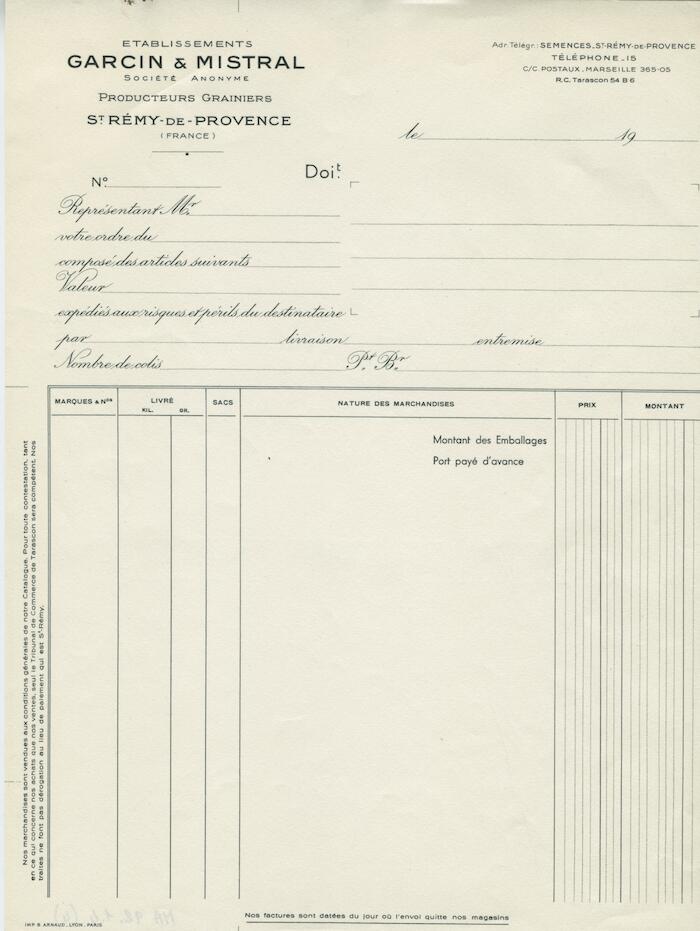 ETABLISSEMENTS
GARCIN & MISTRAL
SOCIÉTÉ ANONYME
PRODUCTEURS GRAINIERS
ST RÉMY-DE-PROVENCE
(FRANCE)
Adr. Télégr.: SEMENCES_ST-RÉMY-DE-PROVENCE
TÉLÉPHONE_15
C/C. POSTAUX_MARSEILLE 365-05
R.C. Tarascon 54 B 6
le 19
Doit
No
Représentant Mr.
votre ordre du
composé des articles suivants
Valeur
expédiés aux risques et périls du destinataire
par livraison entremise
Nombre de colis Pt. Br.
MARQUES & NOS LIVRÉ SACS NATURE DES MARCHANDISES PRIX MONTANT
KIL. GR.
Montant des Emballages
Port payé d'avance
Nos marchandises sont vendues aux conditions générales de notre Catalogue. Pour toute contestation, tant
en ce qui concerne nos achats que nos ventes, seul le Tribunal de Commerce de Tarascon sera compétent. Nos
traites ne font pas dérogation au lieu de paiement qui est St-Rémy.
Nos factures sont datées du jour où l'envoi quitte nos magasins
IMP B. ARNAUD_LYON_PARIS